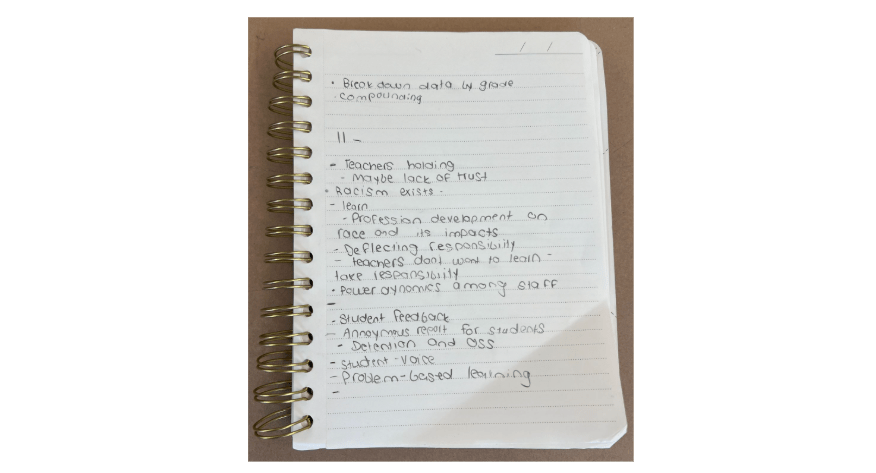 / /
• Break down data by grade
- compounding
11 -
- Teachers holding
- Maybe lack of trust
• Racism exists -
- learn
- Profession development on
race and its impacts
- Deflecting responsibility
- teachers dont want to learn -
take responsibility
• Power dynamics among staff
-
- Student feedback
- Annoymous report for students
- Detention and OSS
- Student-voice
- Problem-based learning
-